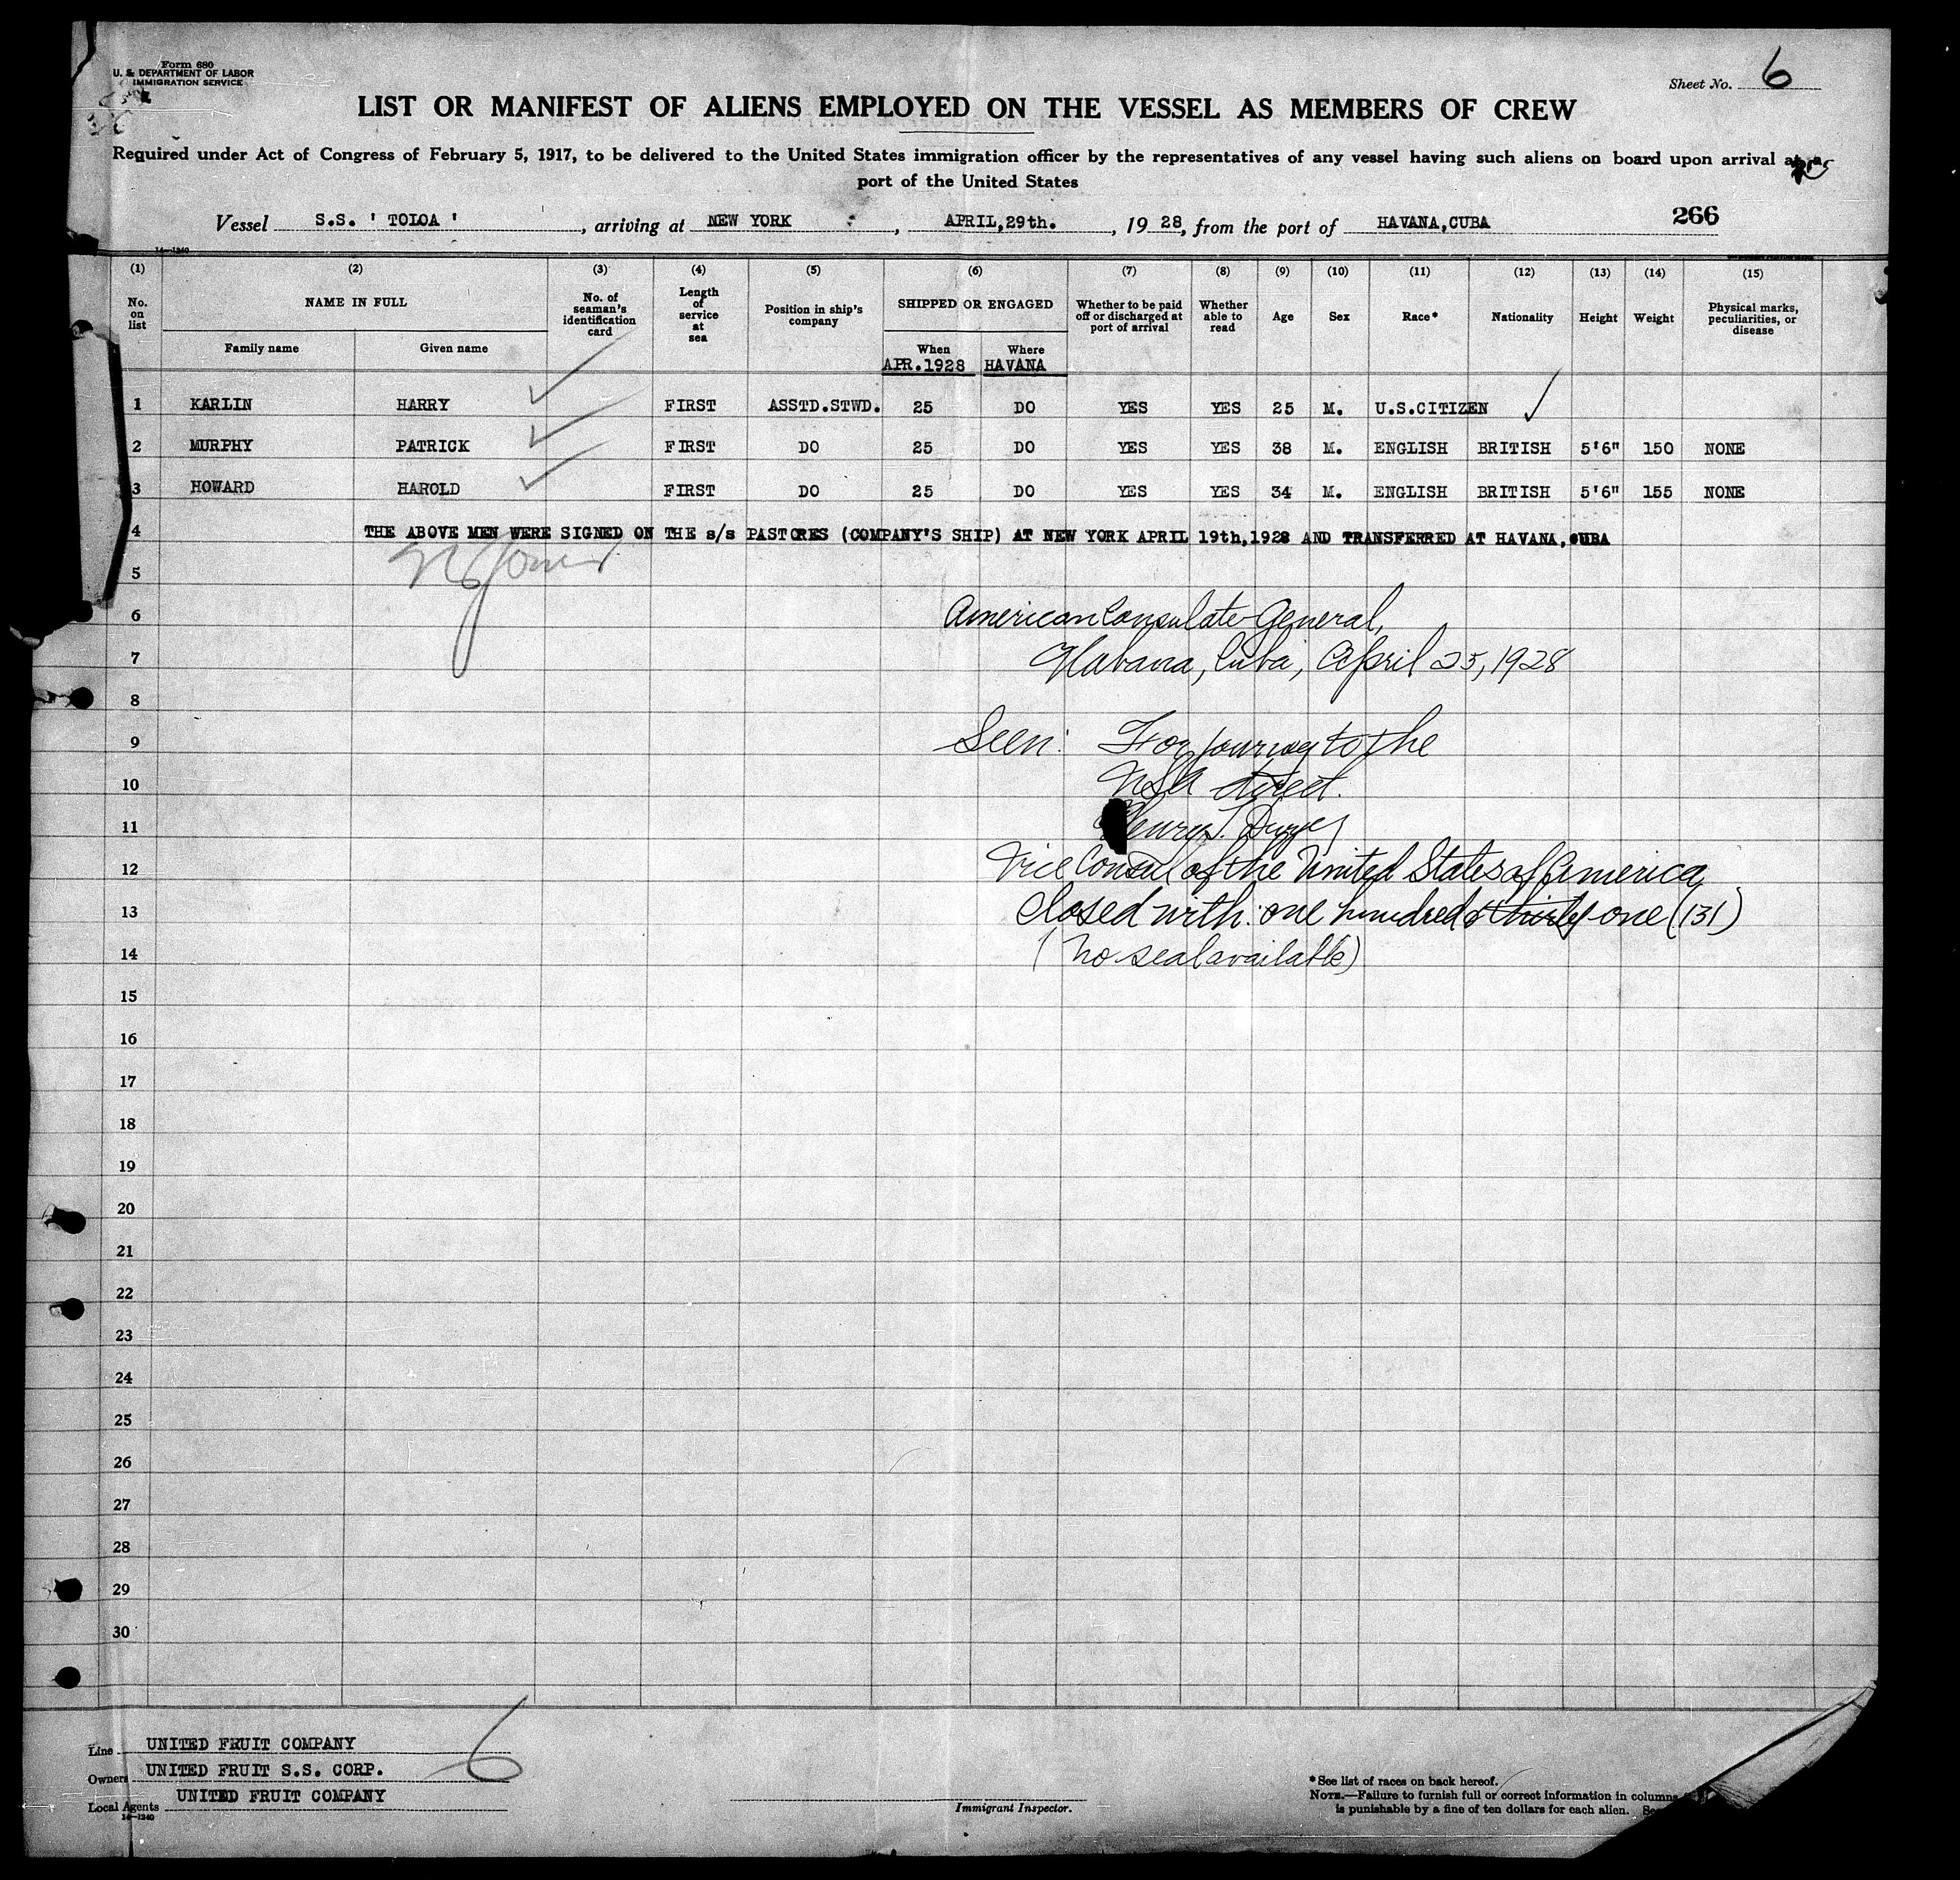 Form 680
U. S. DEPARTMENT OF LABOR
IMMIGRATION SERVICE
Sheet No. 6
LIST OR MANIFEST OF ALIENS EMPLOYED ON THE VESSEL AS MEMBERS OF CREW
Required under Act of Congress of February 5, 1917, to be delivered to the United States immigration officer by the representatives of any vessel having such aliens on board upon arrival at a
port of the United States
266
Vessel S.S. ' TOLOA ' , arriving at NEW YORK , APRIL,29th. , 19 28, from the port of HAVANA,CUBA
14—1240
(1) (2) (3) (4) (5) (6) (7) (8) (9) (10) (11) (12) (13) (14) (15)
No. on list NAME IN FULL No. of seaman's identification card Length of service at sea Position in ship's company SHIPPED OR ENGAGED Whether to be paid off or discharged at port of arrival Whether able to read Age Sex Race* Nationality Height Weight Physical marks, peculiarities, or disease
Family name Given name When Where
APR.1928 HAVANA
1 KARLIN HARRY FIRST ASSTD.STWD. 25 DO YES YES 25 M. U.S.CITIZEN
2 MURPHY PATRICK FIRST DO 25 DO YES YES 38 M. ENGLISH BRITISH 5'6" 150 NONE
3 HOWARD HAROLD FIRST DO 25 DO YES YES 34 M. ENGLISH BRITISH 5'6" 155 NONE
4 THE ABOVE MEN WERE SIGNED ON THE s/s PASTORES (COMPANY'S SHIP) AT NEW YORK APRIL 19th,1928 AND TRANSFERRED AT HAVANA,CUBA
5
6 American Consulate General,
7 Habana, Cuba, April 25, 1928
8
9 Seen: For journey to the
10 USA direct.
11 Henry T. Dwyer
12 Vice Consul of the United States of America
13 Closed with one hundred & thirty-one (131)
14 (No seal available)
15
16
17
18
19
20
21
22
23
24
25
26
27
28
29
30
Line UNITED FRUIT COMPANY
6
Owners UNITED FRUIT S.S. CORP.
Local Agents UNITED FRUIT COMPANY
14—1240
Immigrant Inspector.
*See list of races on back hereof.
NOTE.—Failure to furnish full or correct information in columns
is punishable by a fine of ten dollars for each alien.